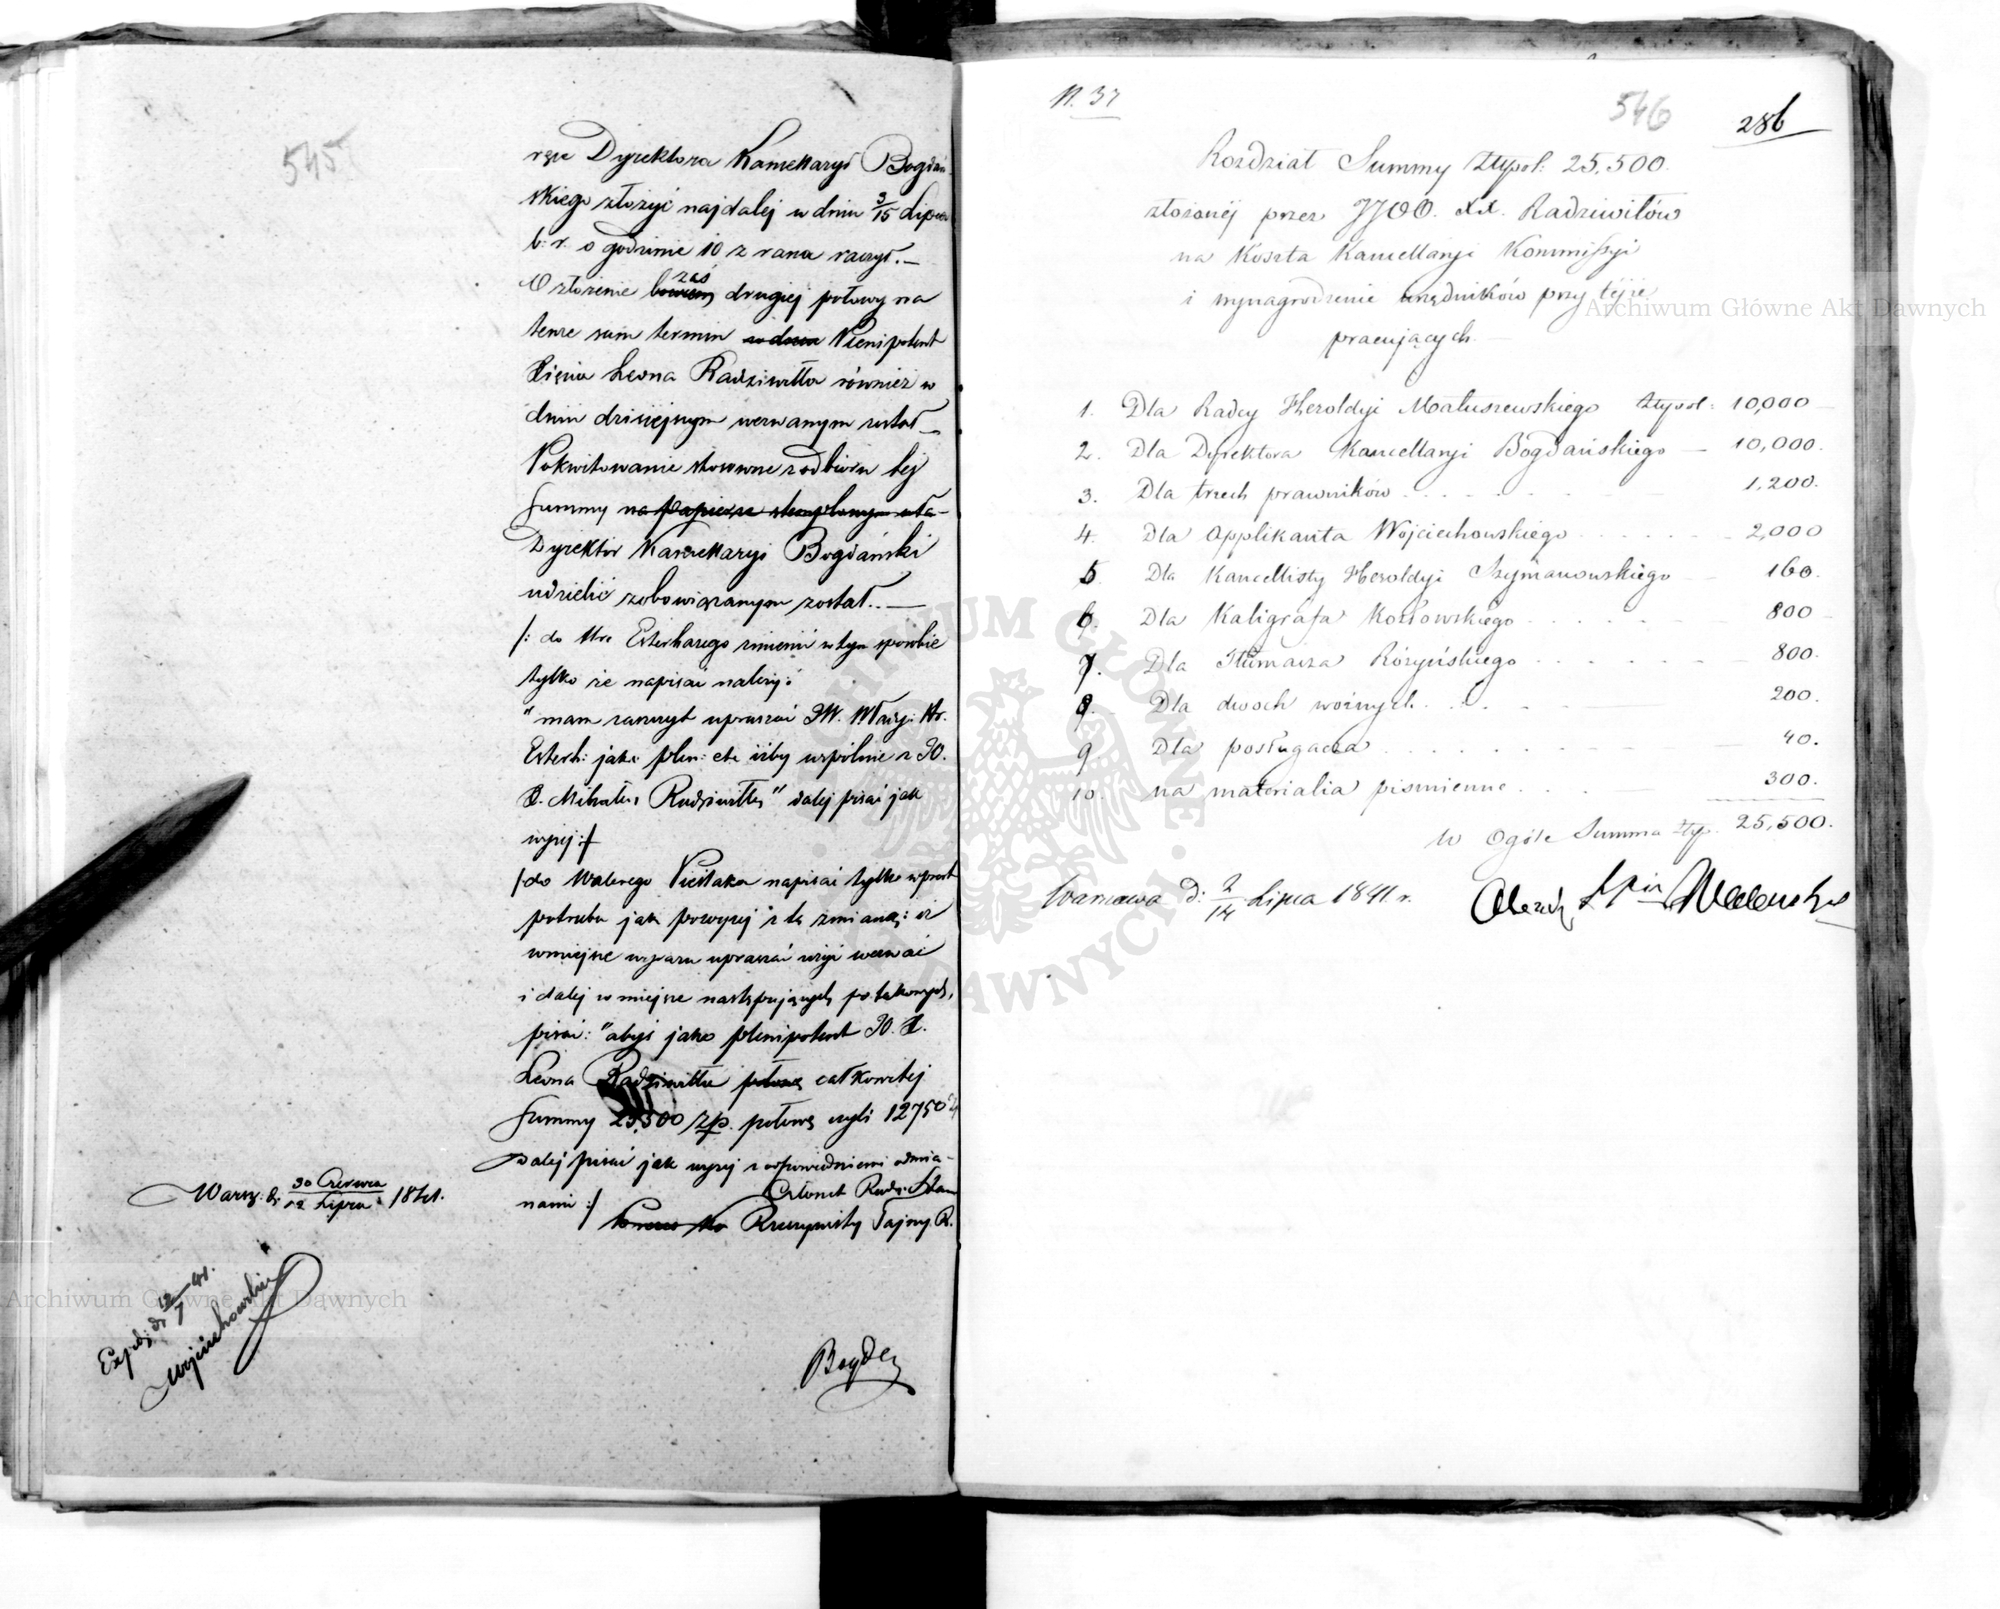 545
ręce Dyrektora Kancellaryi Bogdań-
skiego złożyć najdalej w dniu 3/15 Lipca
b: r. o godzinie 10 z rana raczył. —
O złożenie bowiem zaś drugiej połowy na
tenże sam termin w dniu Plenipotent
Xięcia Leona Radziwiłła również w
dniu dzisiejszym wezwanym został —
Pokwitowanie stosowne z odbioru tej
Summy na papierze stemplowym
Dyrektor Kancellaryi Bogdański
udzielić zobowiązanym został. —
/: do Hra Esterhazego zmienić w tym sposobie
tylko że napisać należy:
" mam zaszczyt upraszać JW. Hr.
Esterh: jako plen: etc iżby wspólnie z JO.
X. Michałem Radziwiłłem" dalej pisać jak
wyżej :/
/do Walerego Pieślaka napisać tylko wprost
potrzeba jak powyżej z tą zmianą: iż
w miejsce wyrazu upraszać użyć wezwać
i dalej w miejsce następujących po takowych,
pisać: "abyś jako plenipotent JO. X.
Leona Radziwiłła połowę całkowitej
Summy 25,500 zp. połowę czyli 12750
dalej pisać jak wyżej z odpowiedniemi odmia-
nami :/
Członek Rady Stanu
Rzeczywisty Tajny R.
Warsz: d: 30 Czerwca / 12 Lipca 1841.
Exped: d: 12/7 41.
Wojciechowski
Bogdań
N. 37
546
286
Rozdział Summy Złtypol: 25,500.
złożonéj przez JJOO. XX. Radziwiłów
na Koszta Kancellaryi Kommissyi
i wynagrodzenie urzędników przy téjże
pracujących.
1. Dla Radcy Heroldyi Matuszewskiego Złtypol: 10,000 —
2. Dla Dyrektora Kancellaryi Bogdańskiego — 10,000.
3. Dla trzech prawników . . . . . 1,200.
4. Dla Applikanta Wojciechowskiego . . . . . 2,000
5. Dla Kancellisty Heroldyi Szymanowskiego — 160.
6. Dla Kaligrafa Kozłowskiego . . . . . 800 —
7. Dla Tłumacza Różyńskiego . . . . . 800.
8. Dla dwóch woźnych . . . . . 200.
9. Dla posługacza . . . . . 40.
10. na materialia piśmienne . . . . . 300.
W Ogóle Summa Złtp. 25,500.
Warszawa d: 2/14 Lipca 1841 r.
Archiwum Główne Akt Dawnych
Archiwum Główne Akt Dawnych
ARCHIWUM GŁÓWNE AKT DAWNYCH